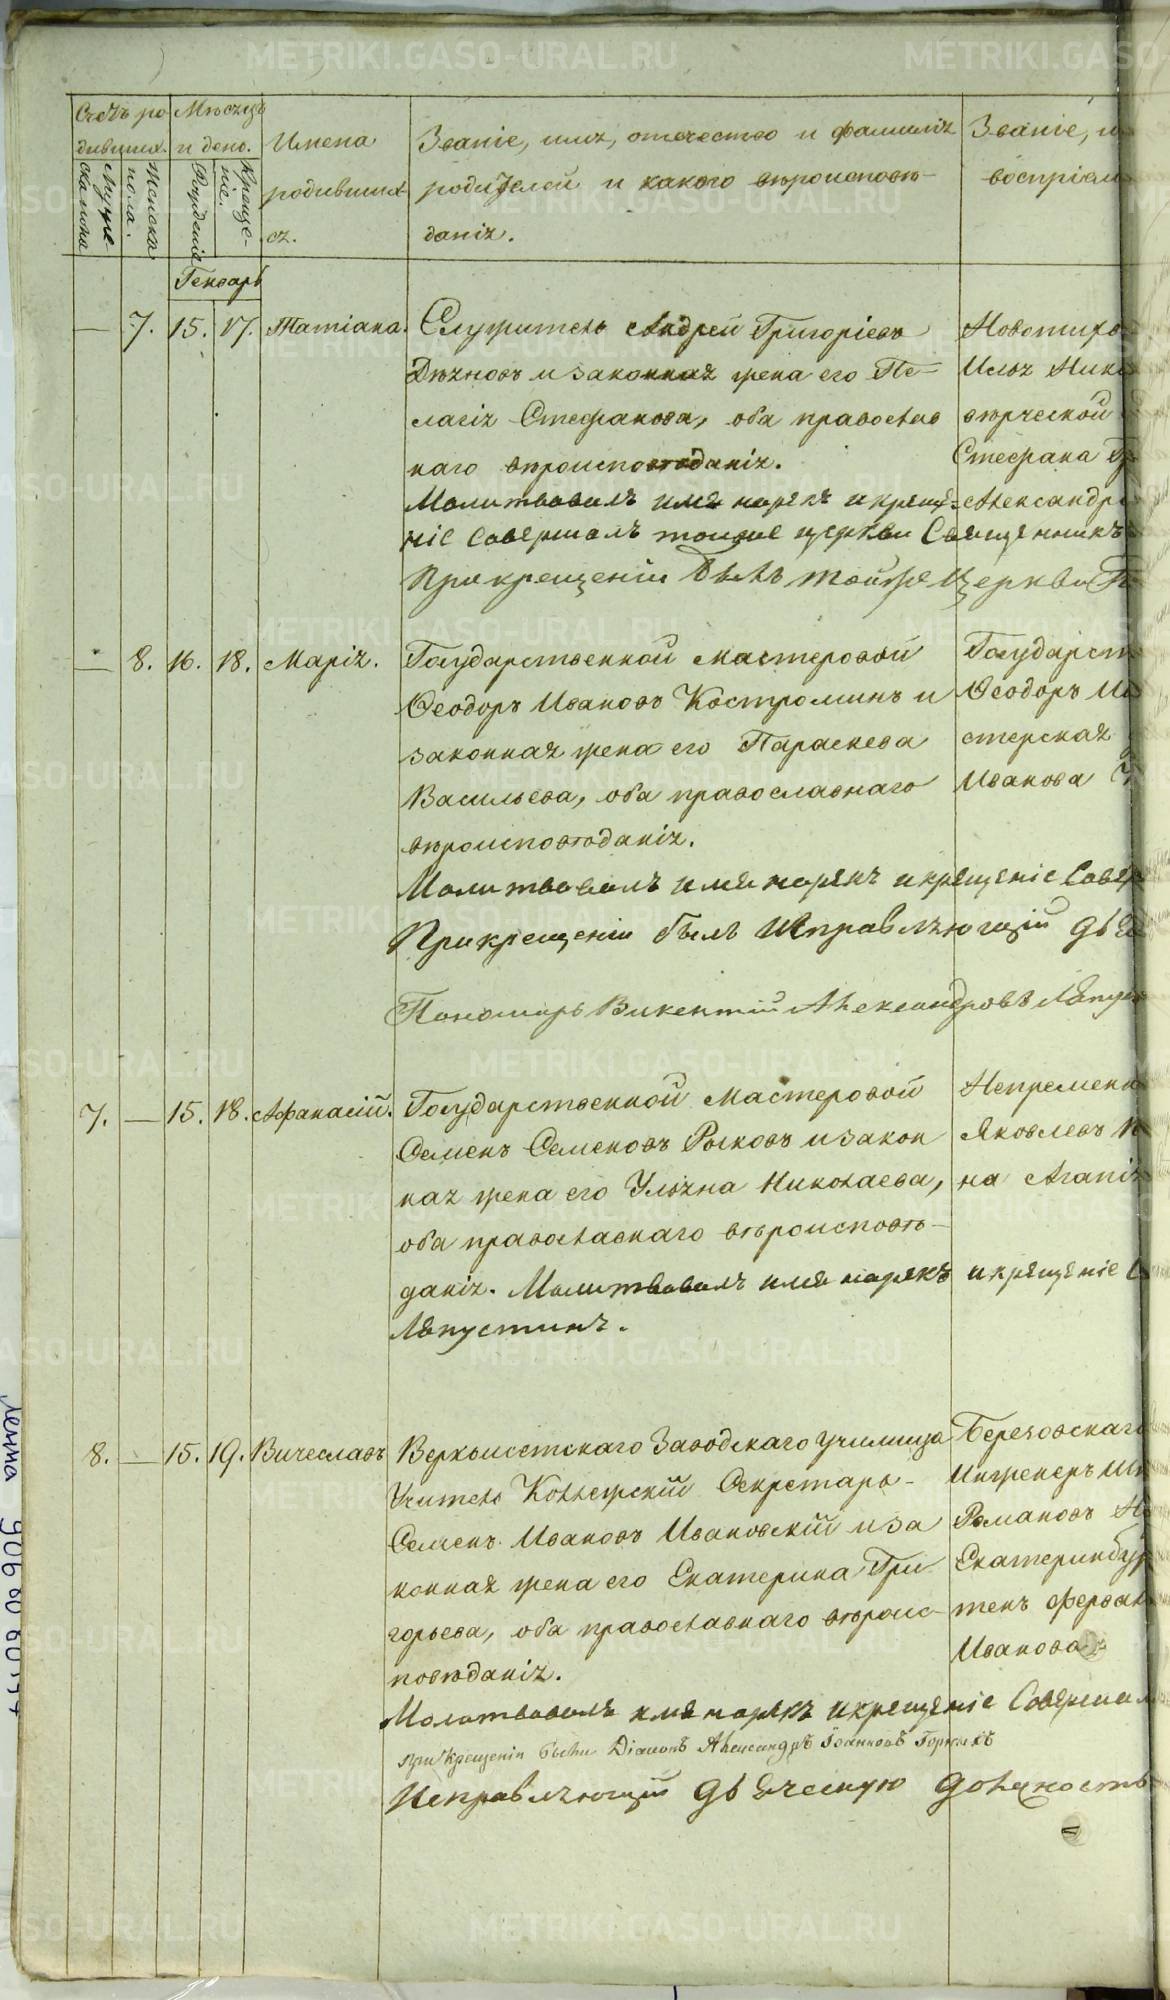 Счетъ ро
дивших.
Мужескаго пола
Женска пола.
Мѣсяцъ
и день.
Рожденія
Крещенія.
Имена
родивших
ся.
Званіе, имя, отечество и фамилія
родителей и какого вѣроисповѣ-
данія.
Званіе, и
воспріем
Генварь
— 7. 15. 17. Татіана.
Служитель Андрей Григорьевъ
и законная жена его Пе-
лагія Стефанова, оба православ
наго вѣроисповѣданія.
Молитвовалъ имя нарекъ и креще-
ніе совершалъ тоиже церкви Священникъ
При крещеніи былъ тойже Церкви П
Илья Нико
Стефана
Александр
— 8. 16. 18. Марія.
Государственной мастеровой
Ѳеодоръ Ивановъ Костроминъ и
законная жена его Параскева
Васильева, оба православнаго
вѣроисповѣданія.
Молитвовалъ имя нарекъ и крещеніе Совер
При крещеніи былъ Исправляющій дьяч
Пономарь Викентій Александровъ Ляпуст
Государст
Ѳеодоръ Ив
стерская
Иванова
7. — 15. 18. Афанасій.
Государственной мастеровой
Семенъ Семеновъ Рыковъ и закон
ная жена его Ульяна Николаева,
оба православнаго вѣроисповѣ-
данія. Молитвовалъ имя нарекъ и крещеніе С
Ляпустинъ.
Непременн
Яковлевъ
на Агапія
8. — 15. 19. Вичеславъ
Верхъисетскаго Заводскаго училища
Учитель Коллежскій Секретарь-
Семенъ Ивановъ Ивановскій и за
конная жена его Екатерина Гри
горьева, оба православнаго вѣроис-
повѣданія.
Молитвовалъ имя нарекъ и крещеніе Совершал
при Крещеніи былъ Діаконъ Александръ Іоанновъ Горныхъ
Исправляющій дьяческую должность
Березовскаго
Инженеръ
Романовъ
Екатеринбур
Иванова
METRIKI.GASO-URAL.RU